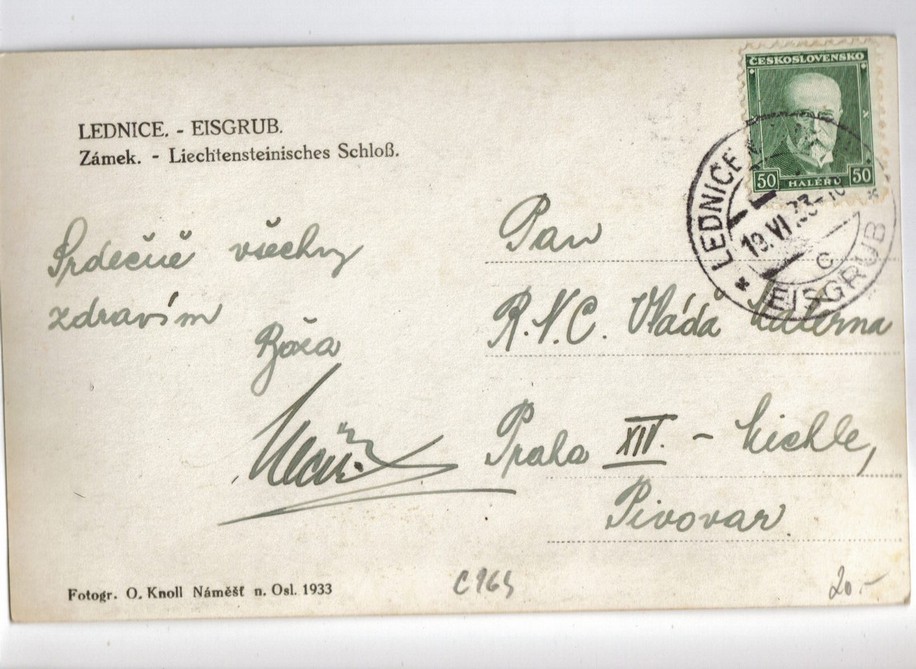 LEDNICE. - EISGRUB.
Zámek. - Liechtensteinisches Schloß.
ČESKOSLOVENSKO
50 HALÉŘŮ 50
* LEDNICE
19.VI.33-
G
EISGRUB *
Srdečně všechny
zdravím
Boža
Pan
R.N.C. Vláda
Praha XIV. - Michle,
Pivovar
Fotogr. O. Knoll Náměšť n. Osl. 1933
C 164
20.-